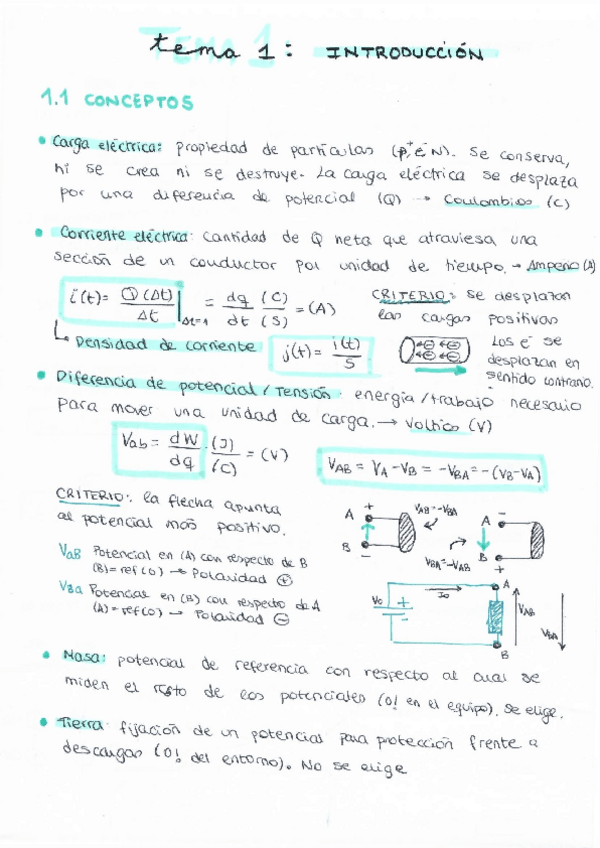 tema 1: INTRODUCCIÓN
1.1 CONCEPTOS
• Carga eléctrica: propiedad de partículas (p⁺, e⁻, N). Se conserva,
ni se crea ni se destruye. La carga eléctrica se desplaza
por una diferencia de potencial (Q) → Coulombios (C)
• Corriente eléctrica: cantidad de Q neta que atraviesa una
sección de un conductor por unidad de tiempo. → Amperio (A)
i(t) = Q(Δt)/Δt |Δt=1 = dq/dt (C)/(S) = (A)
CRITERIO: se desplazan
las cargas positivas
Los e⁻ se
desplazan en
sentido contrario.
↳ Densidad de corriente j(t) = i(t)/S
• Diferencia de potencial / Tensión: energía / trabajo necesario
para mover una unidad de carga. → Voltios (V)
Vab = dW/dq · (J)/(C) = (V)
VAB = VA - VB = -VBA = -(VB - VA)
CRITERIO: la flecha apunta
al potencial más positivo.
VaB Potencial en (A) con respecto de B
(B) = ref (0) → Polaridad ⊕
VBa Potencial en (B) con respecto de A
(A) = ref (0) → Polaridad ⊖
A + B - VAB=-VBA
A - B + VBA=-VAB
Vo + Io A B VAB VBA
• Masa: potencial de referencia con respecto al cual se
miden el resto de los potenciales (0! en el equipo). Se elige.
• Tierra: fijación de un potencial para protección frente a
descargas (0! del entorno). No se elige